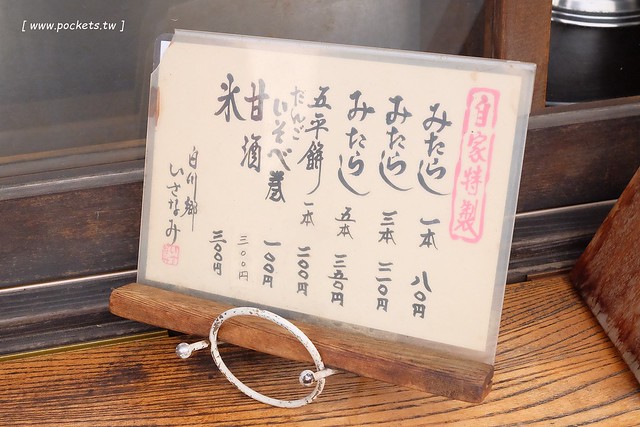 [ www.pockets.tw ]
自家特製
みたらし 一本 八〇円
みたらし 三本 二一〇円
みたらし 五本 三五〇円
五平餅 一本 二〇〇円
だんご いそべ巻 一〇〇円
甘酒 三〇〇円
氷 三〇〇円
白川郷
いさなみ